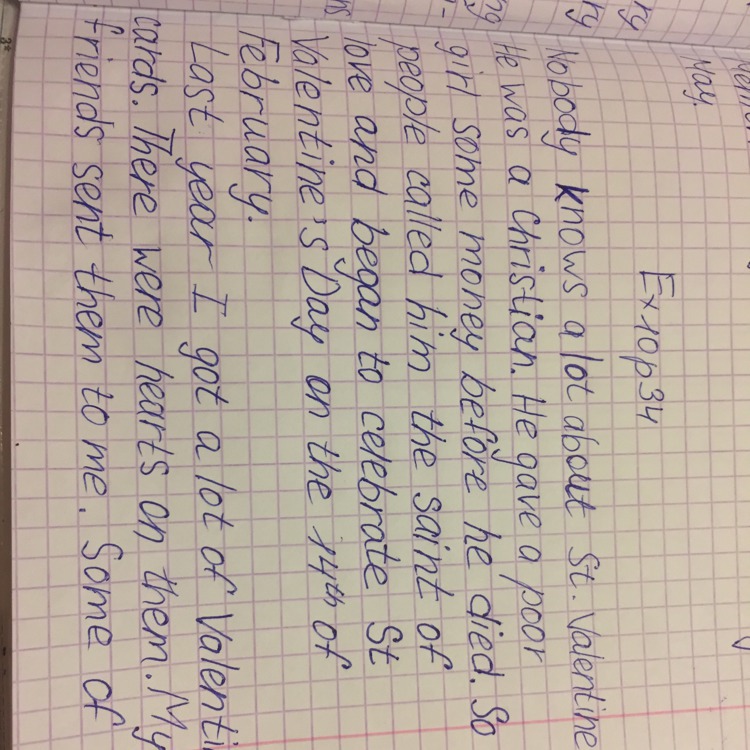 May.
Ex 10 p 34
Nobody knows a lot about St. Valentine
He was a Christian. He gave a poor
girl some money before he died. So
people called him the saint of
love and began to celebrate St
Valentine's Day on the 14th of
February.
Last year I got a lot of Valenti
cards. There were hearts on them. My
friends sent them to me. Some of